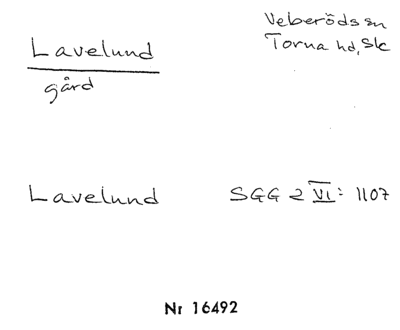 Lavelund
Veberöds sn
Torna hd, Sk
gård
Lavelund SGG 2 VI: 1107
Nr 16492